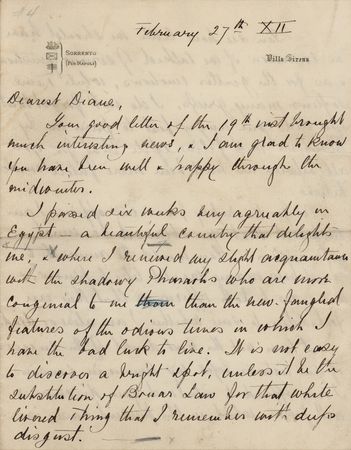 #4
February 27th XII
SORRENTO
(PER NAPOLI)
Villa Sirena
Dearest Diane,
Your good letter of the 19th inst brought
much interesting news, & I am glad to know
you have been well & happy through the
midwinter.
I passed six weeks very agreeably in
Egypt – a beautiful country that delights
me, & where I renewed my slight acquaintance
with the shadowy Pharaohs who are more
congenial to me than than the new-fangled
features of the odious times in which I
have the bad luck to live. It is not easy
to discover a bright spot, unless it be the
substitution of Bonar Law for that white
livered thing that I remember with deep
disgust.